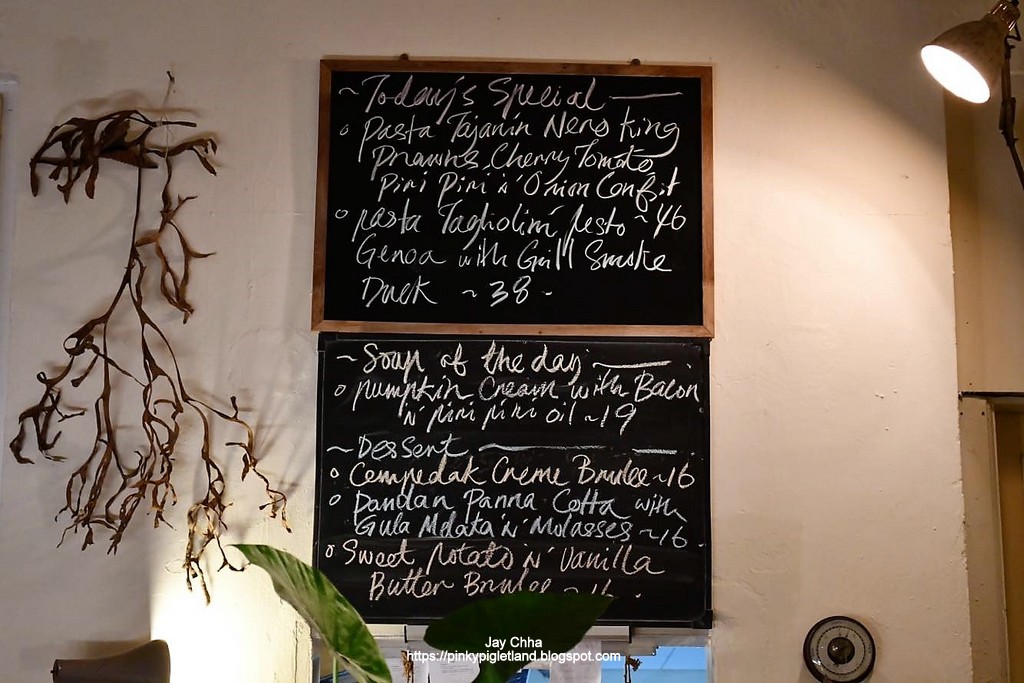 ~ Today's Special —
o Pasta Tajarin Nero King
Prawns, Cherry Tomato,
Piri Piri n' Onion Confit
o Pasta Tagliolini Pesto ~46
Genoa with Grill Smoke
Duck ~38-
~ Soup of the day —
o Pumpkin Cream with Bacon
n' piri piri oil ~19
~ Dessert —
o Cempedak Creme Brulee ~16
o Pandan Panna Cotta with
Gula Melaka n' Molasses ~16
o Sweet Potato n' Vanilla
Butter Brulee ~16.
Jay Chha
https://pinkypigletland.blogspot.com